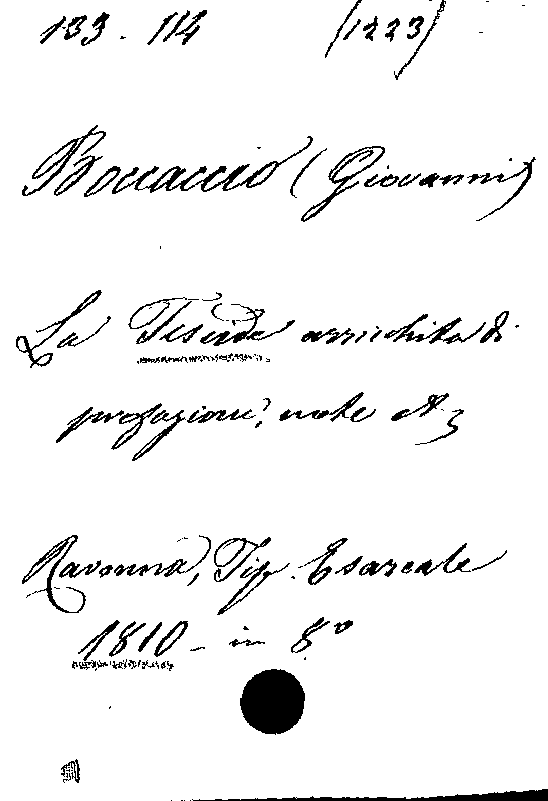 133. 114 (1223)
Boccaccio (Giovanni)
La Teseide arricchita di
prefazione, note etc
Ravenna, Tip. Esarcale
1810 - in 8º